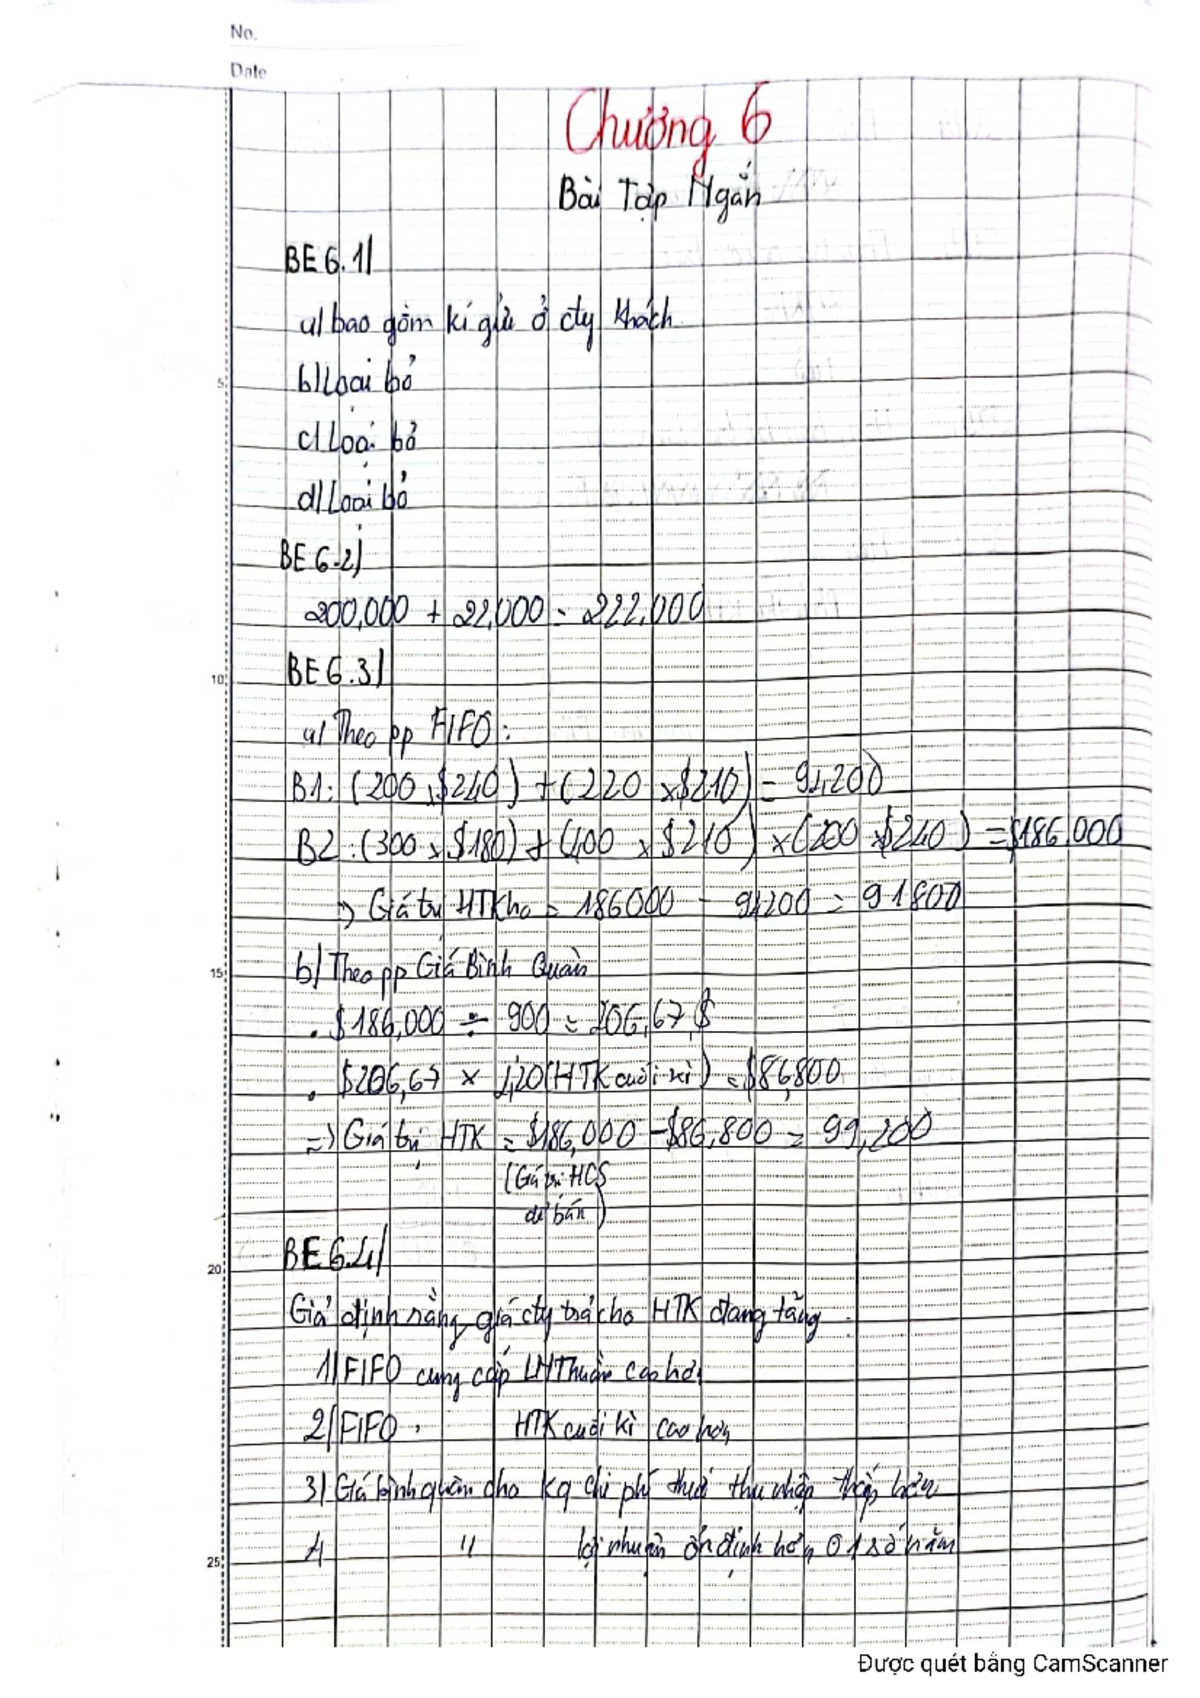 No.
Date
Chương 6
Bài Tập Ngắn
BE 6.1/
a/ bao gồm kí gửi ở cty khách
b/ Loại bỏ
c/ Loại bỏ
d/ Loại bỏ
5
BE 6.2/
200,000 + 22,000 = 222,000
BE 6.3/
10
a/ Theo pp FIFO:
B1: (200 x $240) + (220 x $210) = 94,200
B2: (300 x $180) + (400 x $210) x (200 x $240) = $186,000
=> Giá trị HTKho = 186000 - 94200 = 91800
b/ Theo pp Giá Bình Quân
15
. $186,000 ÷ 900 = 206,67 $
. $206,67 x 420 (HTK cuối kì) = $86,800
=> Giá trị HTK = $186,000 - $86,800 = 99,200
(Giá trị HCS
để bán)
BE 6.4/
20
Giả định rằng giá cty trả cho HTK đang tăng
1/ FIFO cung cấp LN Thuần cao hơn
2/ FIFO HTK cuối kì cao hơn
3/ Giá bình quân cho kq chi phí thuế thu nhập thấp hơn
4 " lợi nhuận ổn định hơn ở 1 số năm
25
Được quét bằng CamScanner